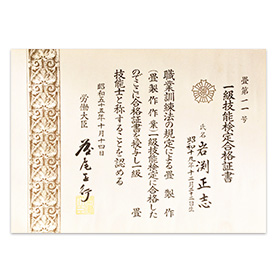 畳第一一号
一級技能検定合格証書
氏名 岩渕正志
昭和十九年十二月三十三日生
職業訓練法の規定による畳製作
(畳製作作業)一級技能検定に合格した
のでここに合格証書を授与し一級畳
技能士と称することを認める
昭和五十五年十月十四日
労働大臣